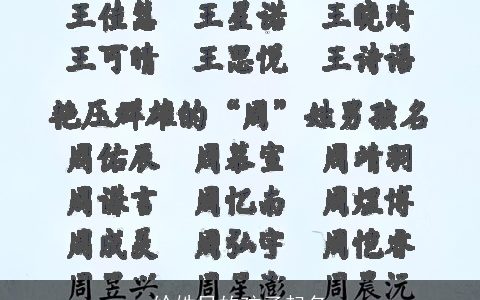 王佳慧 王星诺 王晓琦
王可晴 王思悦 王诗语
艳压群雄的“周”姓男孩名
周佑辰 周慕宣 周靖羽
周谦言 周忆南 周煜博
周成昊 周弘宇 周恺睿
周昱兴 周星澎 周晨沅